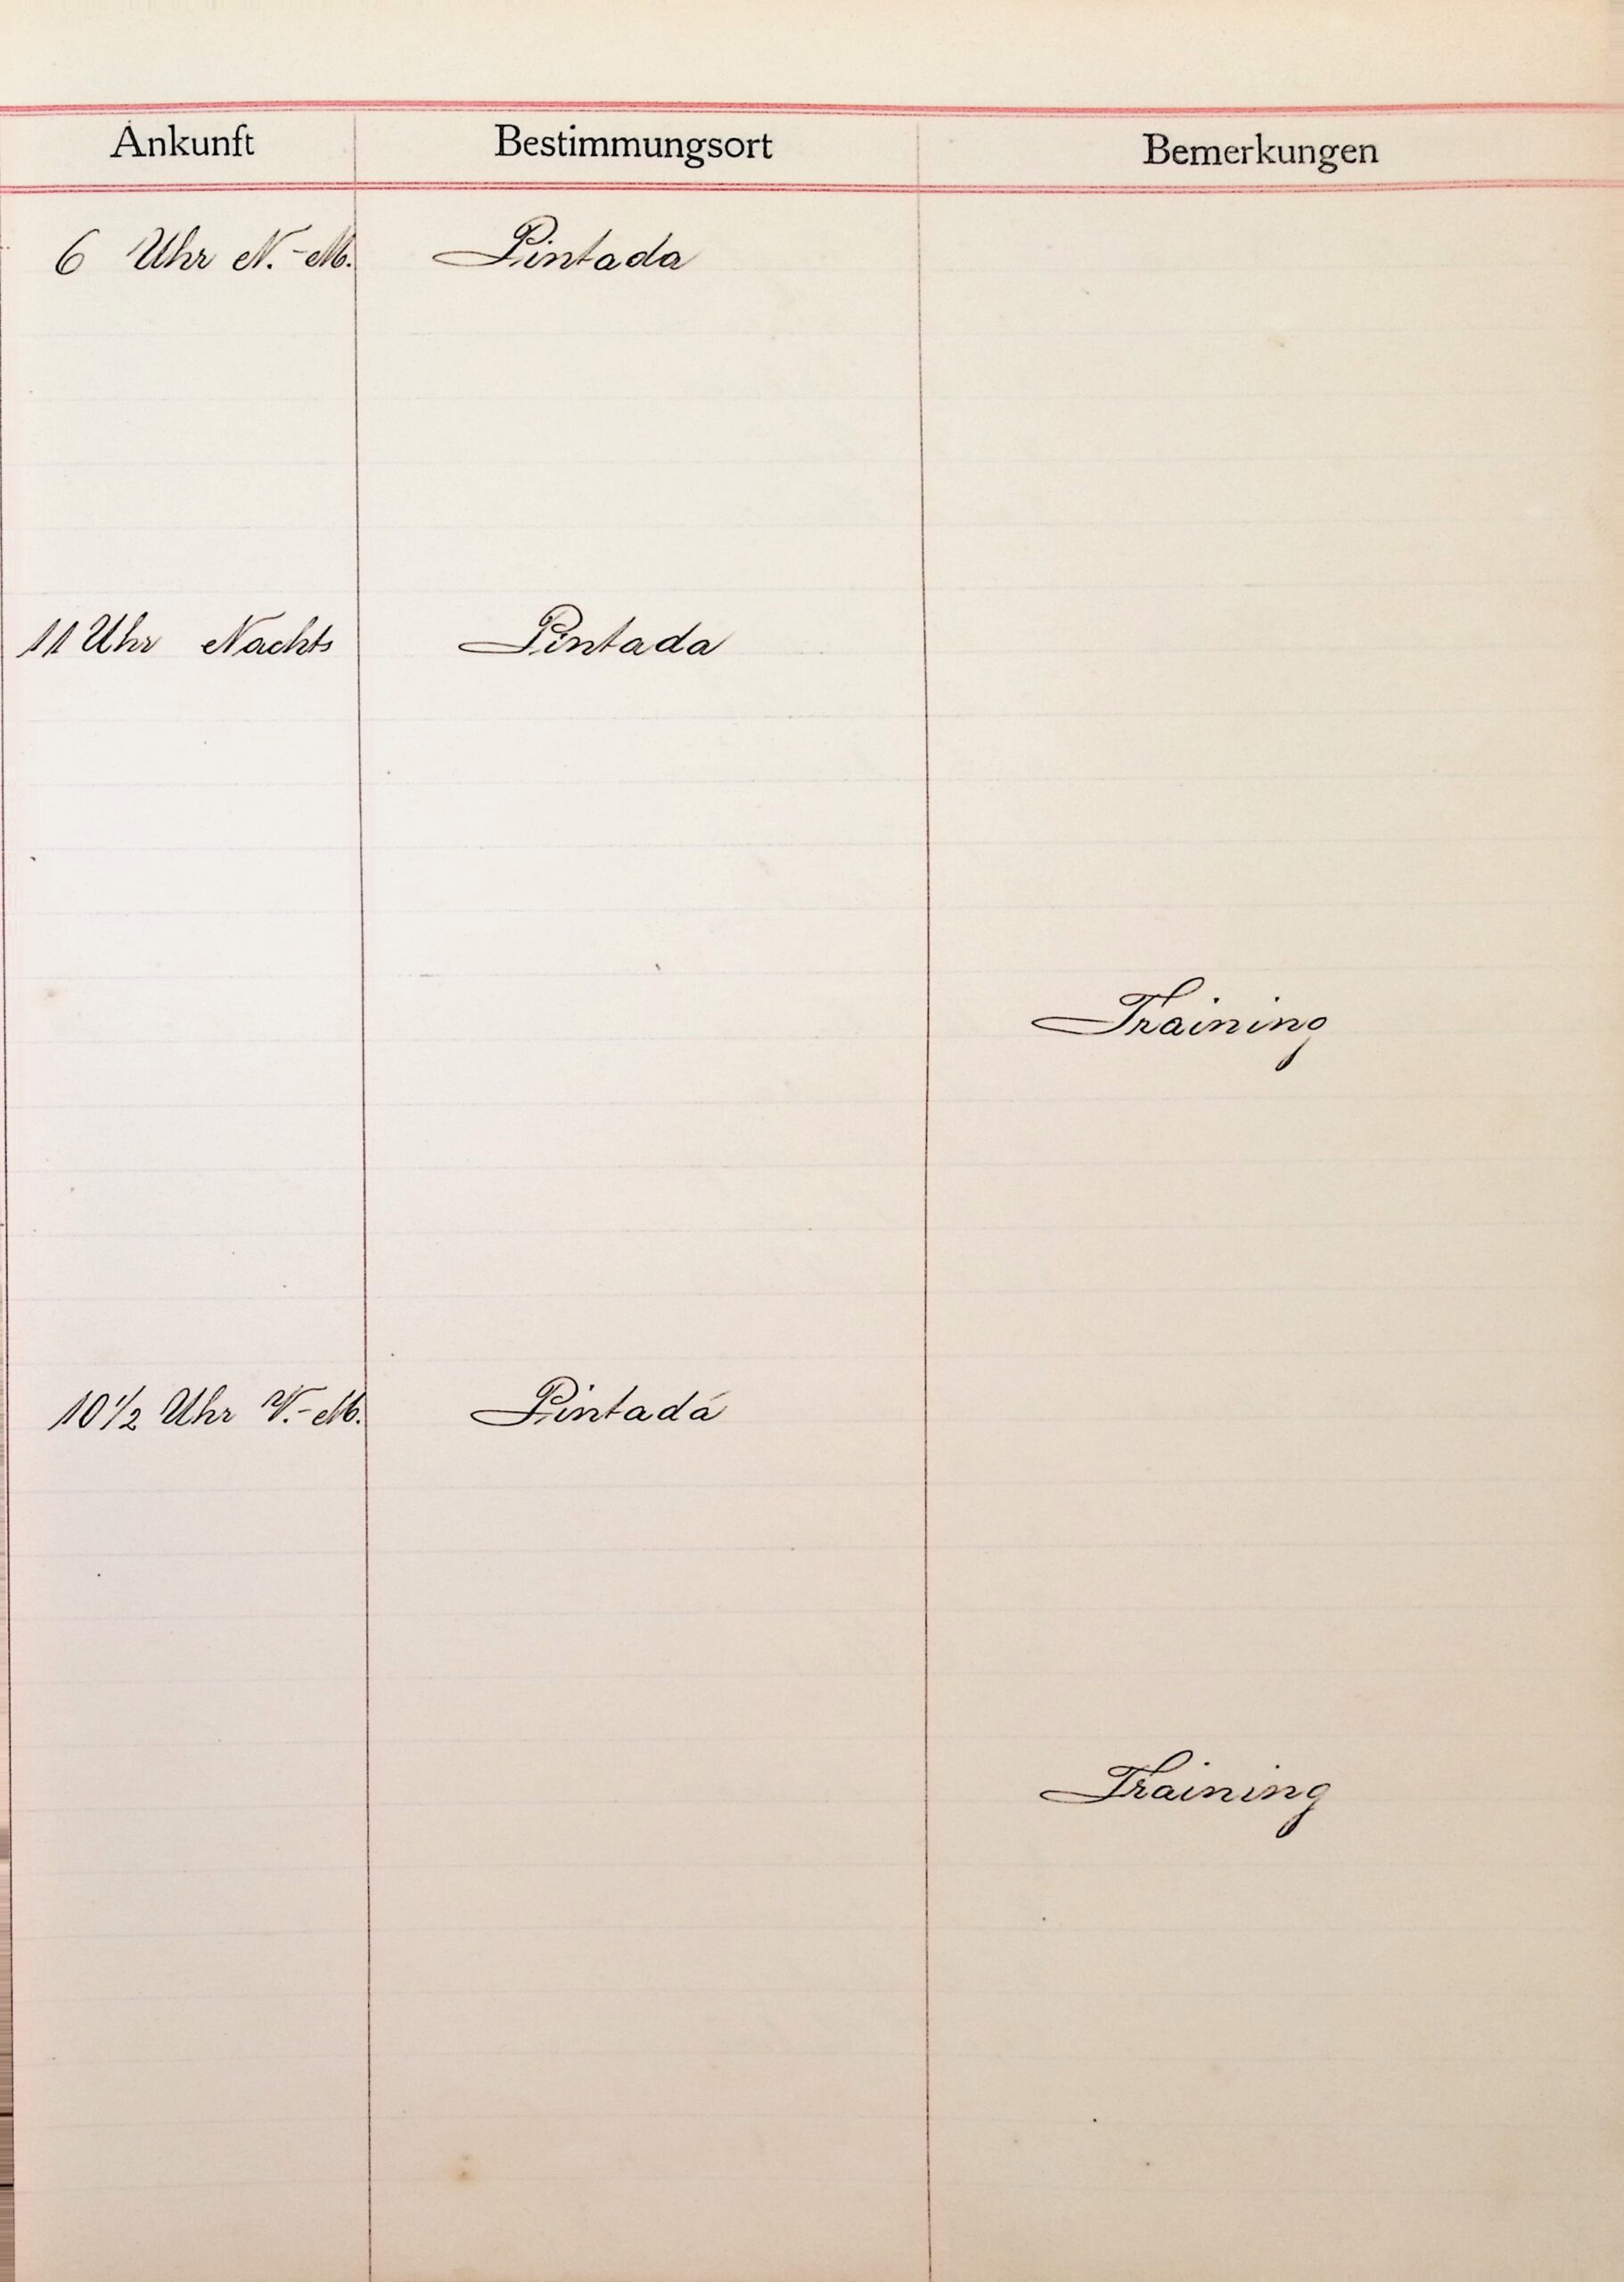 Ankunft Bestimmungsort Bemerkungen
6 Uhr N.-M. Pintada
11 Uhr Nachts Pintada
Training
10 1/2 Uhr V.-M. Pintada
Training